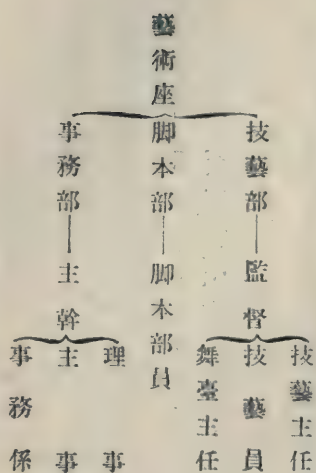 藝術座
技藝部──監督
技藝主任
技藝員
舞臺主任
脚本部──脚本部員
事務部──主幹
理事
主事
事務係